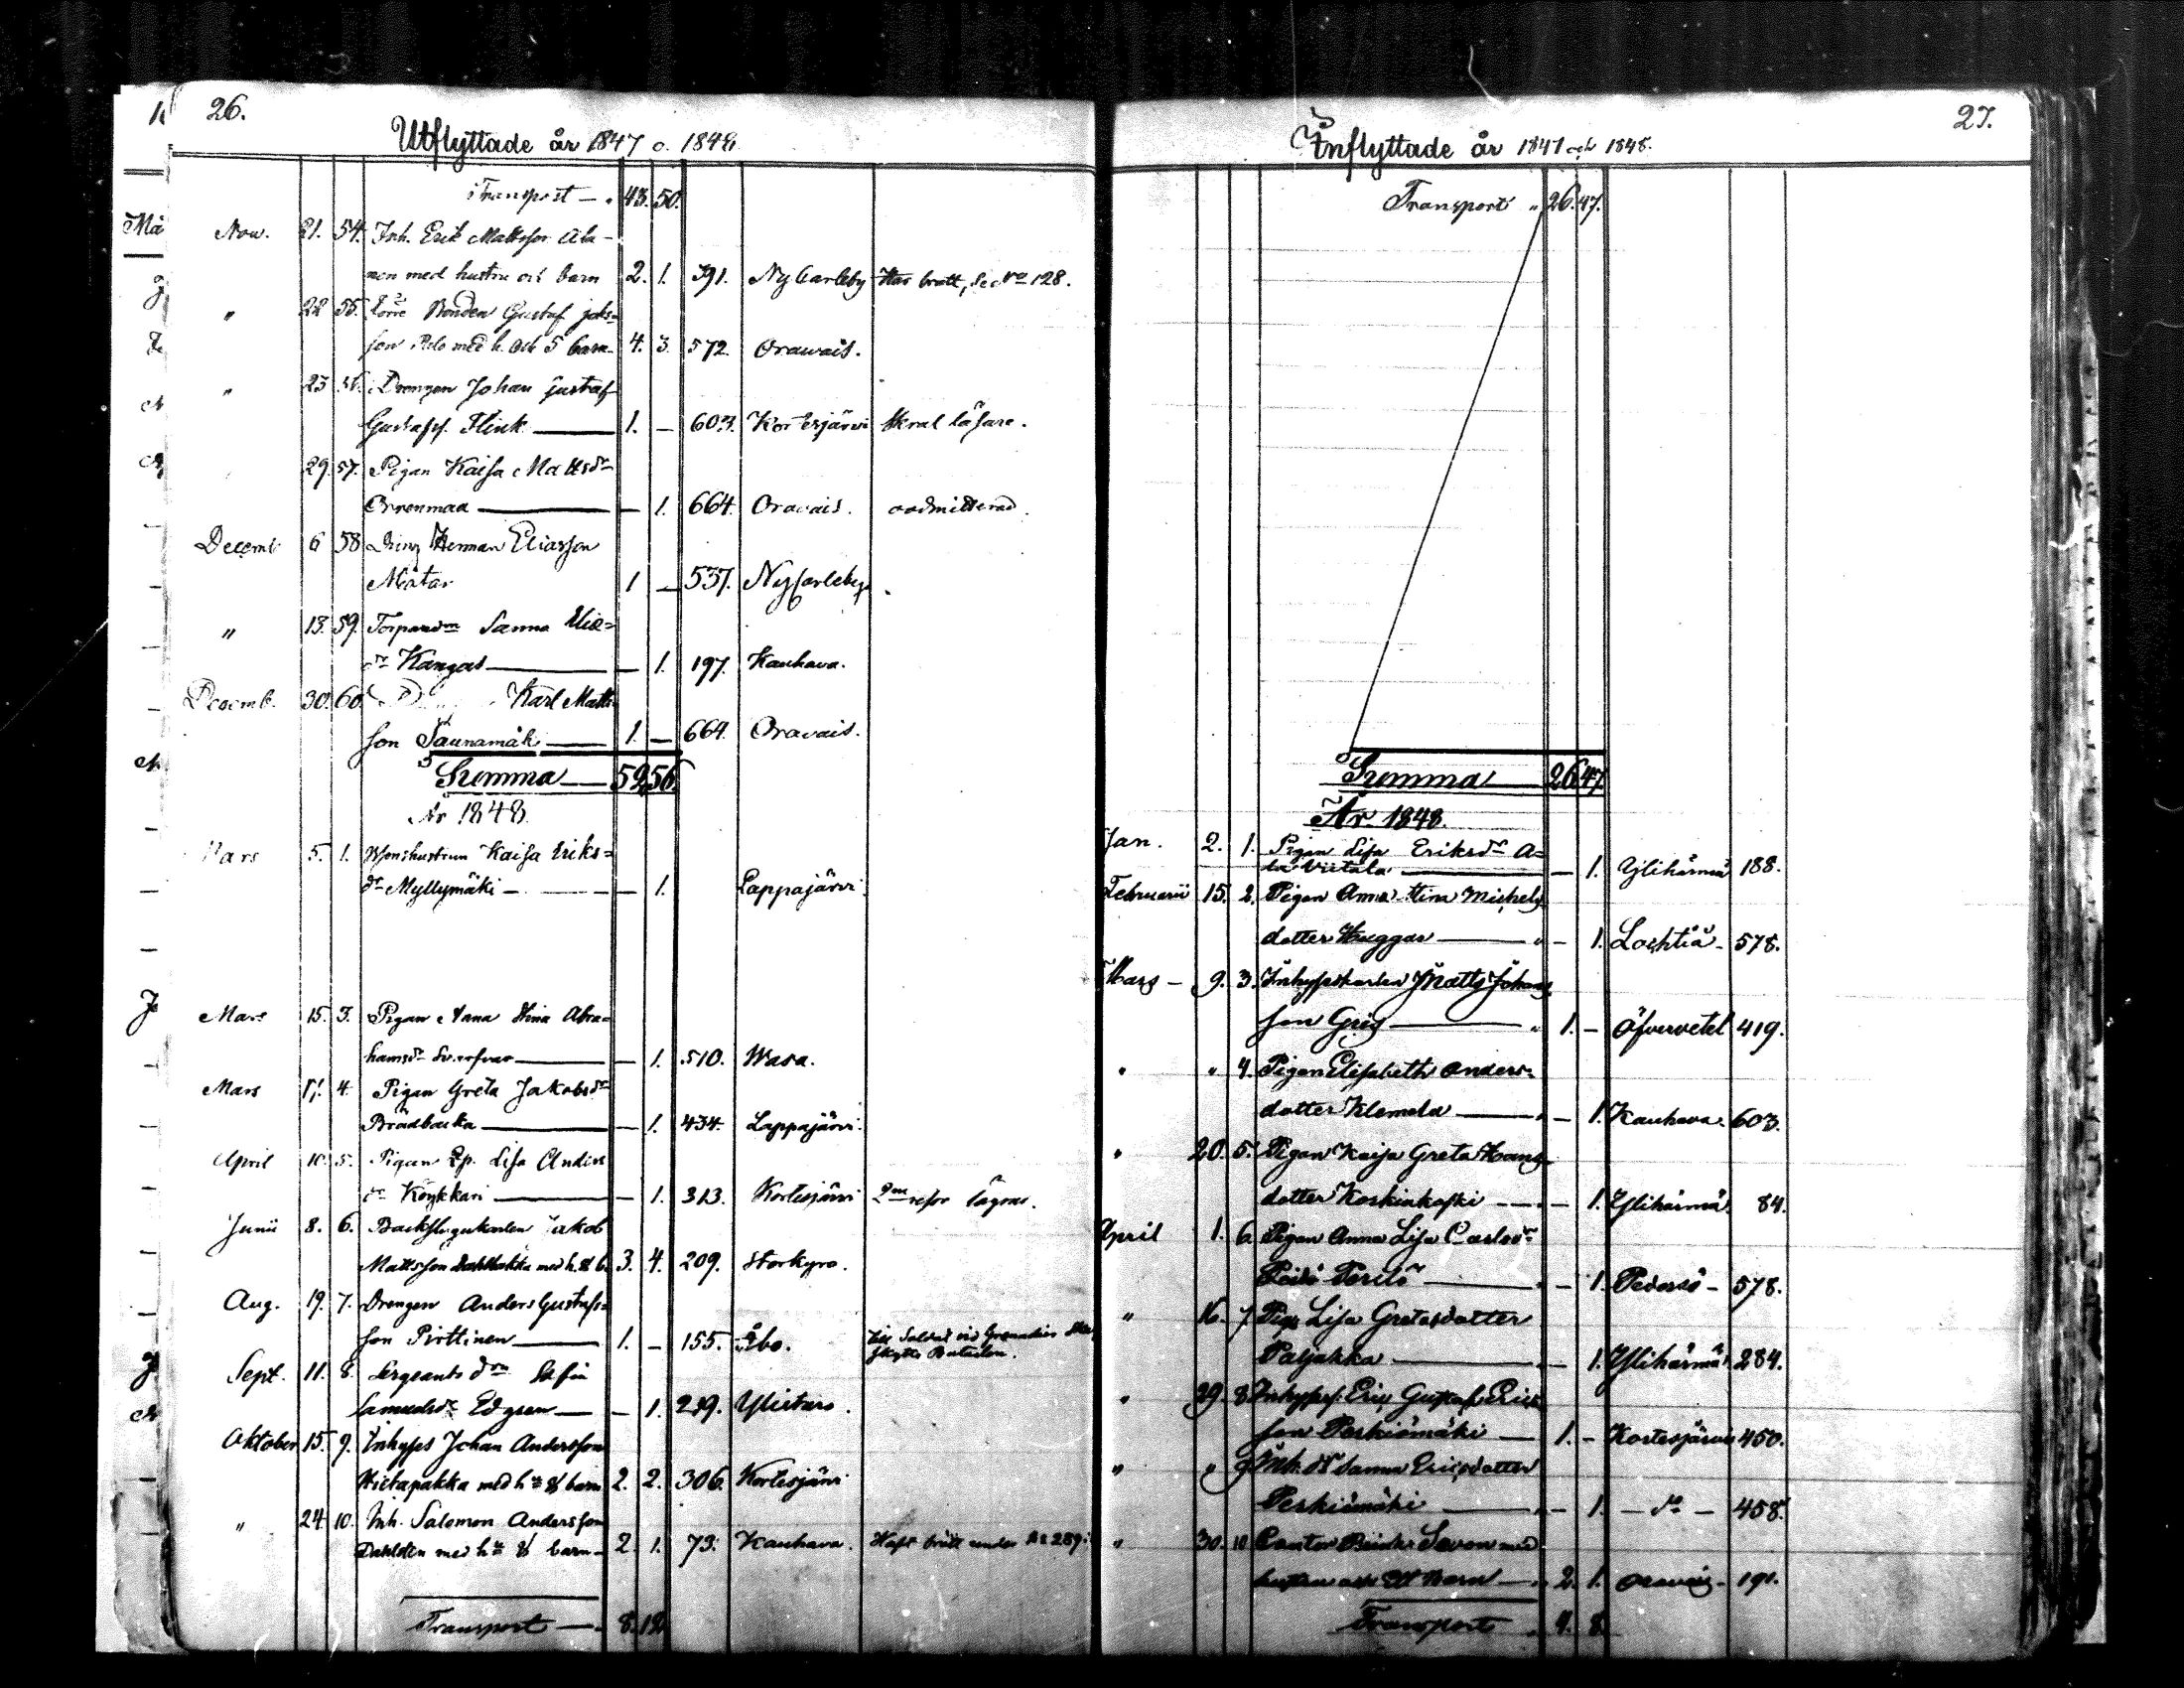 26.
Utflyttade år 1847 o. 1848
Transport — 43. 50.
Nov. 21. 54. Inh. Erik Mattsson Ala-
nen med hustru och barn 2. 1. 391. Ny Carleby Har brutit, se No 128.
" 22 55. Bonden Gustaf Jaks=
son med h. och 5 barn 4. 3. 572. Orawais.
" 23 56. Drengen Johan Gustaf
Gustafss. Flink — 1. — 603. Kortesjärvi Skral läsare.
29. 57. Pigan Kaisa Mattsdr
Orrenmaa — — 1. 664. Oravais. oadmitterad.
Decemb. 6 58 Dreng Herman Eliasson
Matar 1 — 537. NyCarleby.
" 13. 59. Sanna Elia=
dr Kangas — — 1. 197. Kauhava.
Decemb. 30. 60. Karl Matts
son Saunamäki — 1. — 664. Oravais.
Summa — 52. 56.
År 1848
Mars 5. 1. Kaisa Eriks=
dr Myllymäki — — 1. Lappajärvi.
Mars 15. 3. Pigan Anna Stina Abra=
hamsdr — — 1. 510. Wasa.
Mars 17. 4. Pigan Greta Jakobsdr
Brädbacka — — 1. 434. Lappajärvi.
April 10. 5. Pigan Lisa Anders
dr Köykkäri — — 1. 313. Kortesjärvi
Junii 8. 6. Jakob
Mattsson med h. & b. 3. 4. 209. Storkyro.
Aug. 19. 7. Drengen Anders Gustafs=
son Pirttinen — 1. — 155. Åbo. Till Soldat vid Grenadier
Skytte Bataillon.
Sept. 11. 8. Sergeants
Samuelsdr Edgren — — 1. 219. Ylistaro.
Oktober 15. 9. Inhyses Johan Andersson
Hietapakka med hu & barn 2. 2. 306. Kortesjärvi
" 24 10. Inh. Salomon Andersson
med hu & barn — 2. 1. 73. Kauhava. Haft brutit under No 289.
Transport — 8. 12
27.
Inflyttade år 1847 och 1848.
Transport " 26. 47.
Summa — 26 47.
År 1848.
Jan. 2. 1. Pigan Lisa Eriksdr A=
la Viitala — — 1. Ylihärmä 188.
Februarii 15. 2. Pigan Anna Stina Michels
dotter Huggar — " — 1. Lochteå — 578.
Mars — 9. 3. Inhysekarlen Matts Johans
son Grig — " 1. — Öfvervetel 419.
" " 4. Pigan Elisabeth Anders=
dotter Klemola — — 1. Kauhava. 603.
" 20. 5. Pigan Kaisa Greta Hans
dotter Koskinkoski — — 1. Ylihärmä. 84.
April 1. 6. Pigan Anna Lisa Carlsdr
— — 1. Pedersö — 578.
" 16. 7 Pig. Lisa Gretasdotter
Paljakka — — 1. Ylihärmä 284.
" 29. 8 Eric Gustaf Erics
son Peskiömäki — 1. — Kortesjärvi 450.
" " 9 Inh. Sanna Ericsdotter
Peskiömäki — — 1. — do — 458.
" 30. 10 Cantor Savon med
hustru och ett barn — 2. 1. Oravais — 191.
Transport " 4. 8.